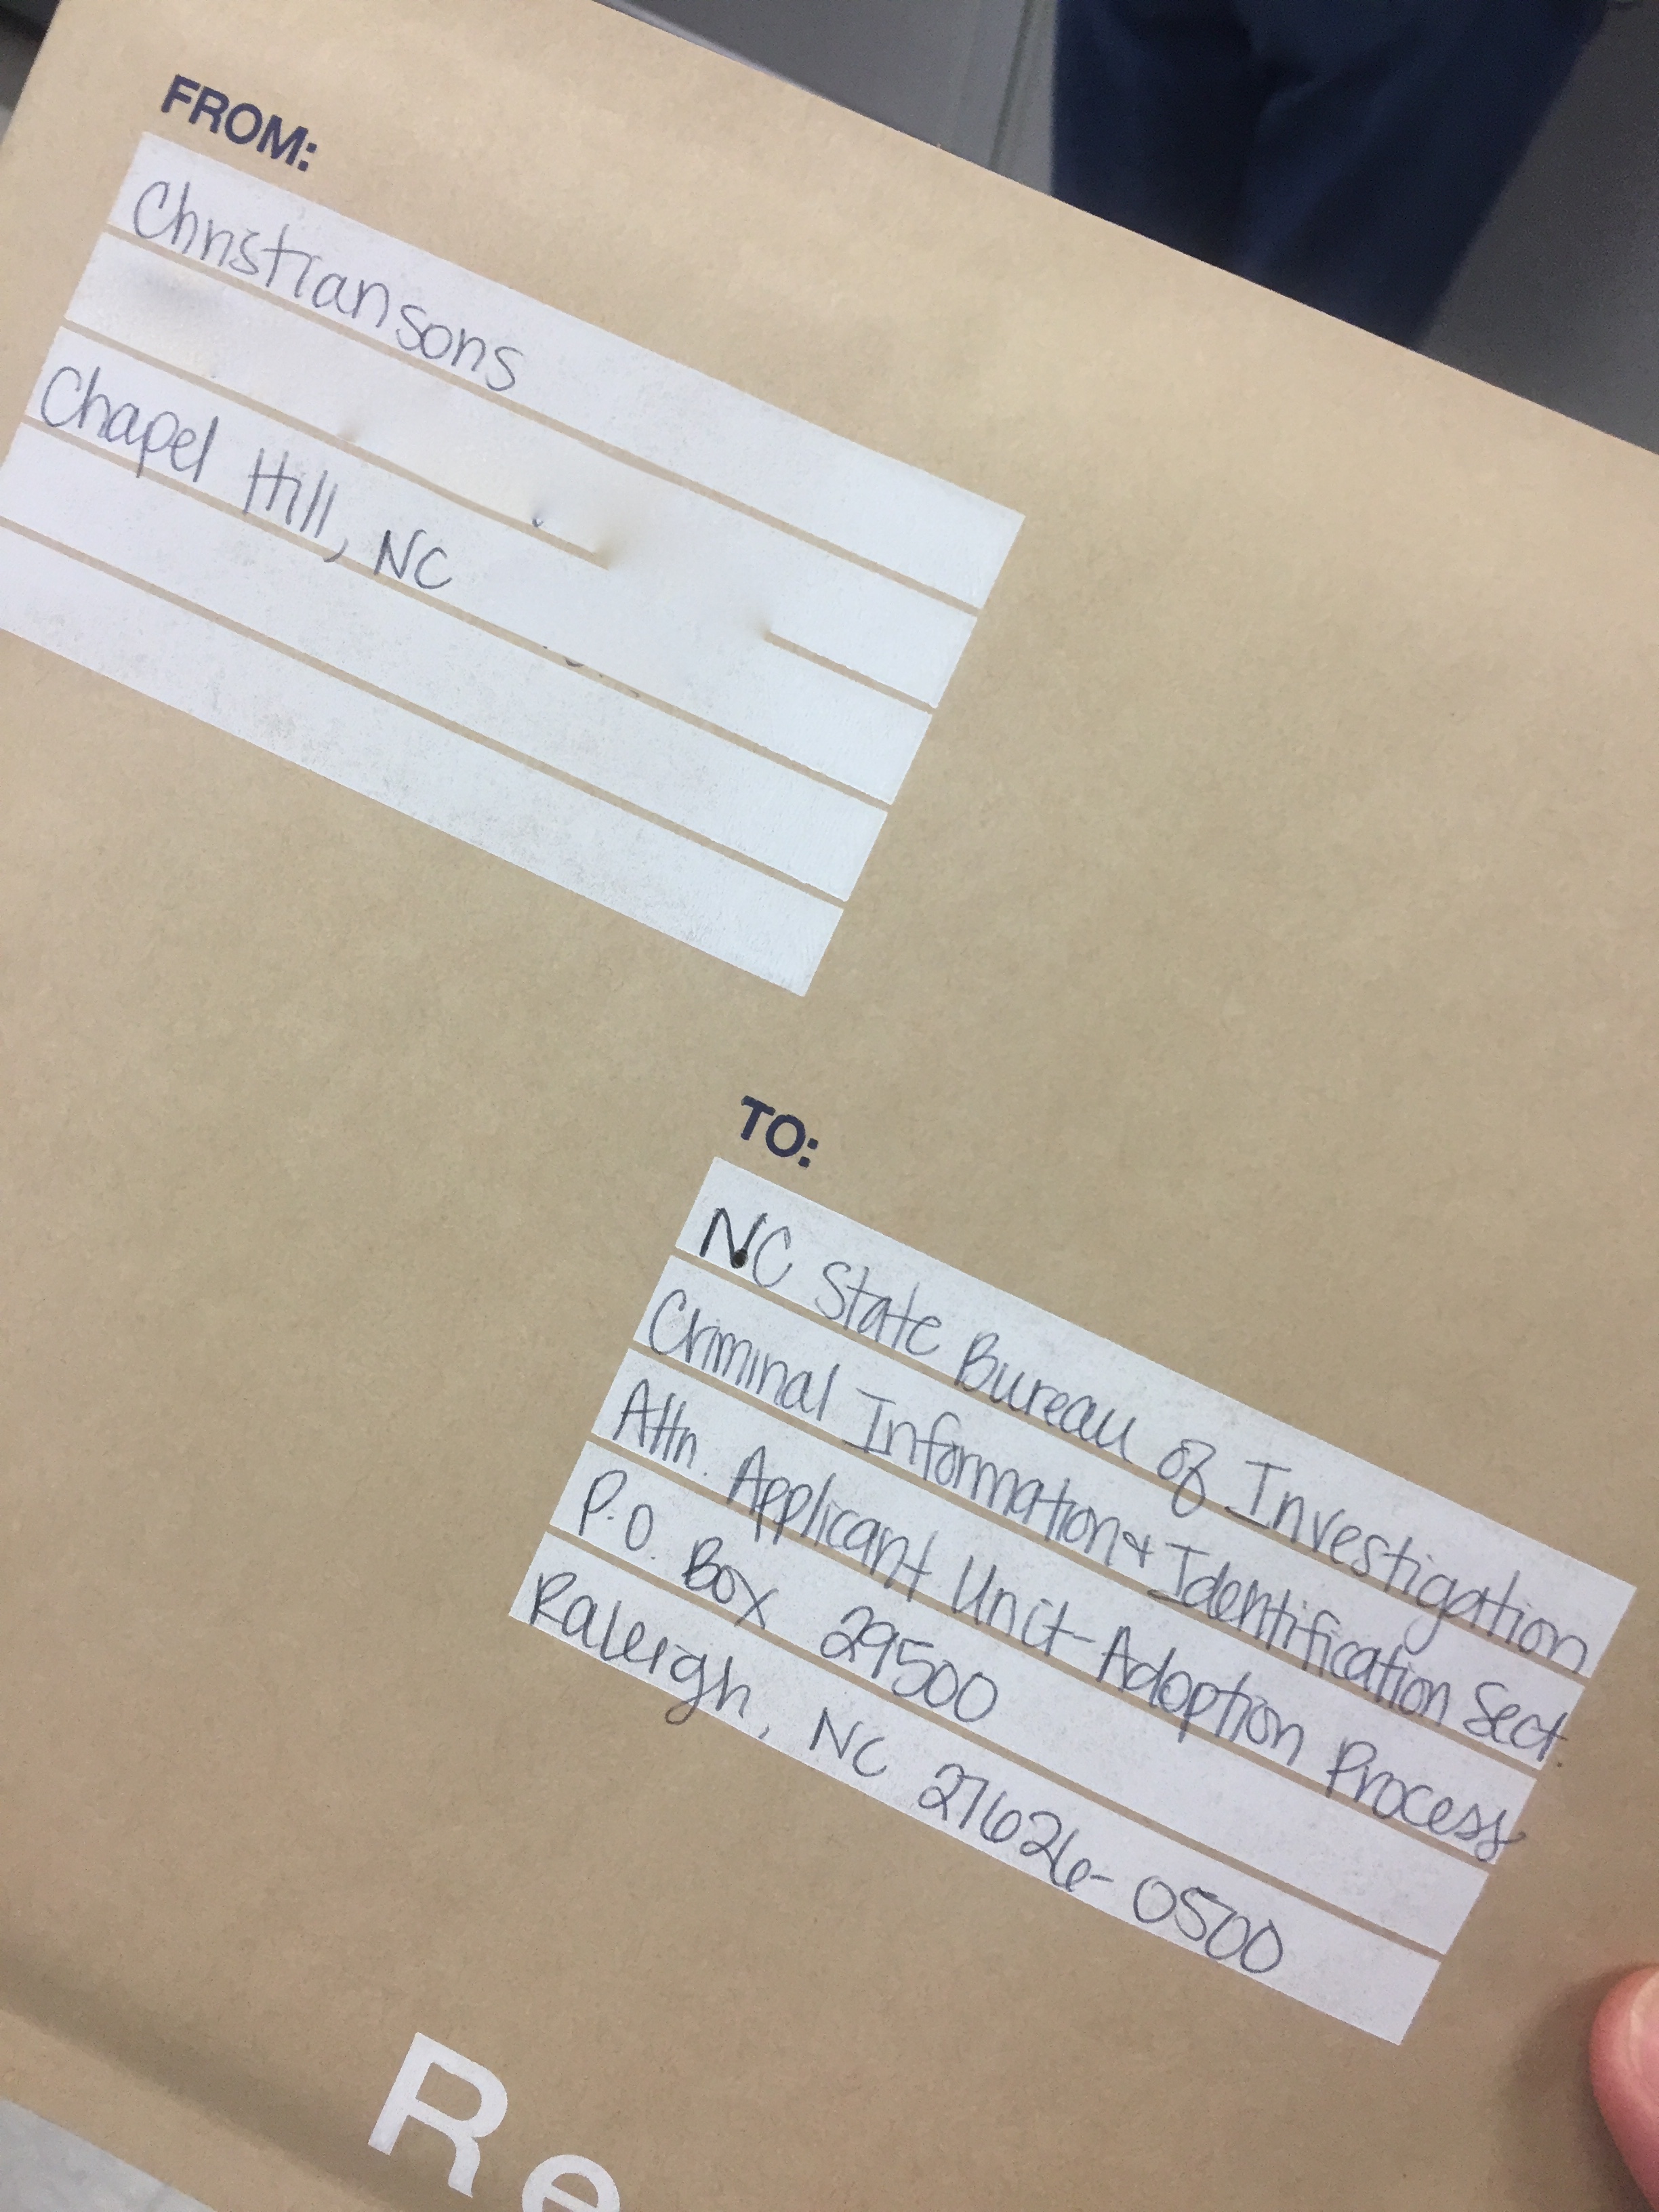 FROM:
Christiansons
Chapel Hill, NC
TO:
NC State Bureau of Investigation
Criminal Information & Identification Sect.
Attn. Applicant Unit-Adoption Process
P.O. Box 29500
Raleigh, NC 27626-0500
Re